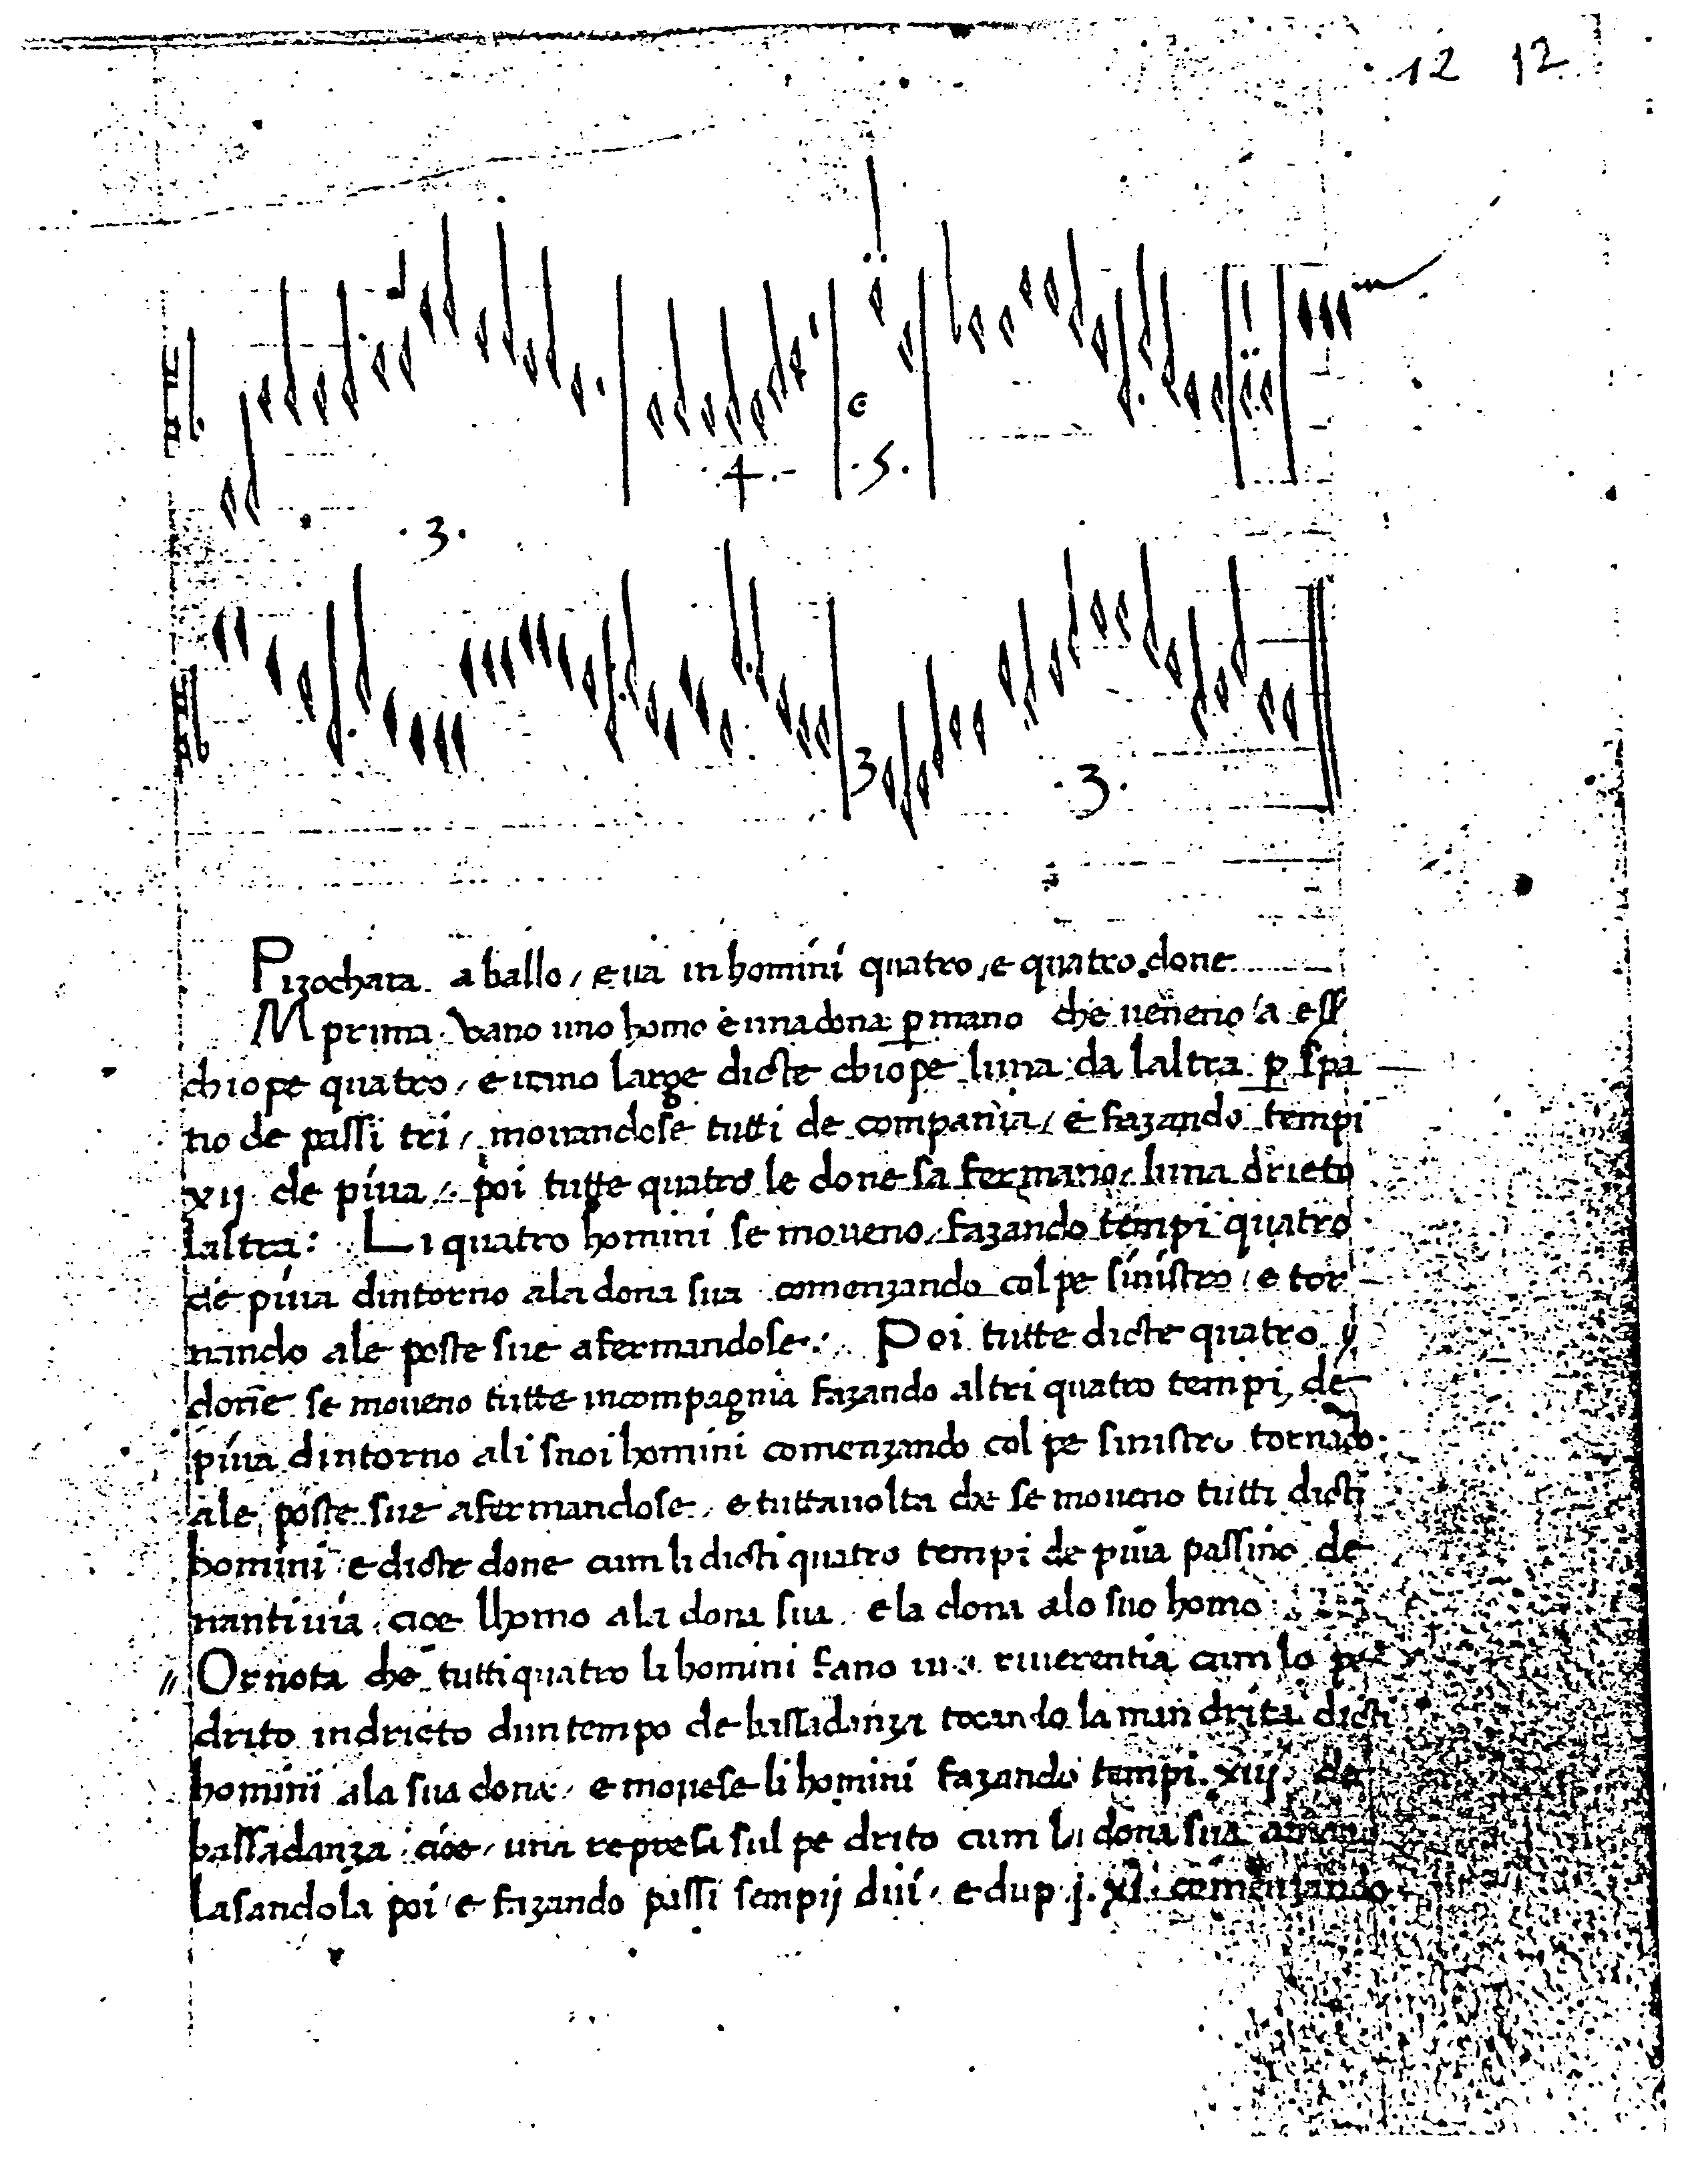 12 12
.3. .4. .5.
3 .3.
Pizochara a ballo / e va in homini quatro / e quatro done
Mprima vano uno homo e una dona p mano che veneno a ess
chiope quatro / e veno large dicte chiope luna da laltra p spa
tio de passi tri / movandose tutti de compania / e fazando tempi
xij de piva / poi tutte quatro le done sa fermano / luna drieto
laltra: Li quatro homini se moveno / fazando tempi quatro
de piva dintorno ala dona sua comenzando col pe sinistro / e tor
nando ale poste sue afermandose: Poi tutte dicte quatro
done se moveno tutte incompagnia fazando altri quatro tempi de
piva dintorno ali suoi homini comenzando col pe sinistro tornãdo
ale poste sue afermandose / e tuttavolta che se moveno tutti dicti
homini e dicte done cum li dicti quatro tempi de piva passino de
nanti via cioe lhomo ala dona sua e la dona alo suo homo
// Or nota che tutti quatro li homini fano una riverentia cum lo pe
drito indrieto dun tempo de bassadanza tocando la man drita dicti
homini ala sua dona / e movese li homini fazando tempi .xiij. de
bassadanza cioe / una represa sul pe drito cum la dona sua
lasandola poi / e fazando passi sempij dui / e dupij .xi. comenzando